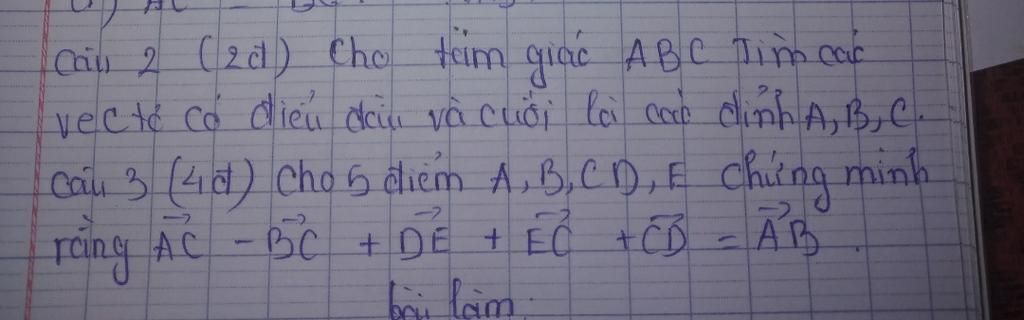 Câu 2 (2đ) Cho tam giác ABC Tìm các
vectơ có điểu đầu và cuối là các đỉnh A, B, C.
Câu 3 (4đ) Cho 5 điểm A, B, C D, E Chứng minh
rằng \overrightarrow{AC} - \overrightarrow{BC} + \overrightarrow{DE} + \overrightarrow{EC} + \overrightarrow{CD} = \overrightarrow{AB}.
bài làm.